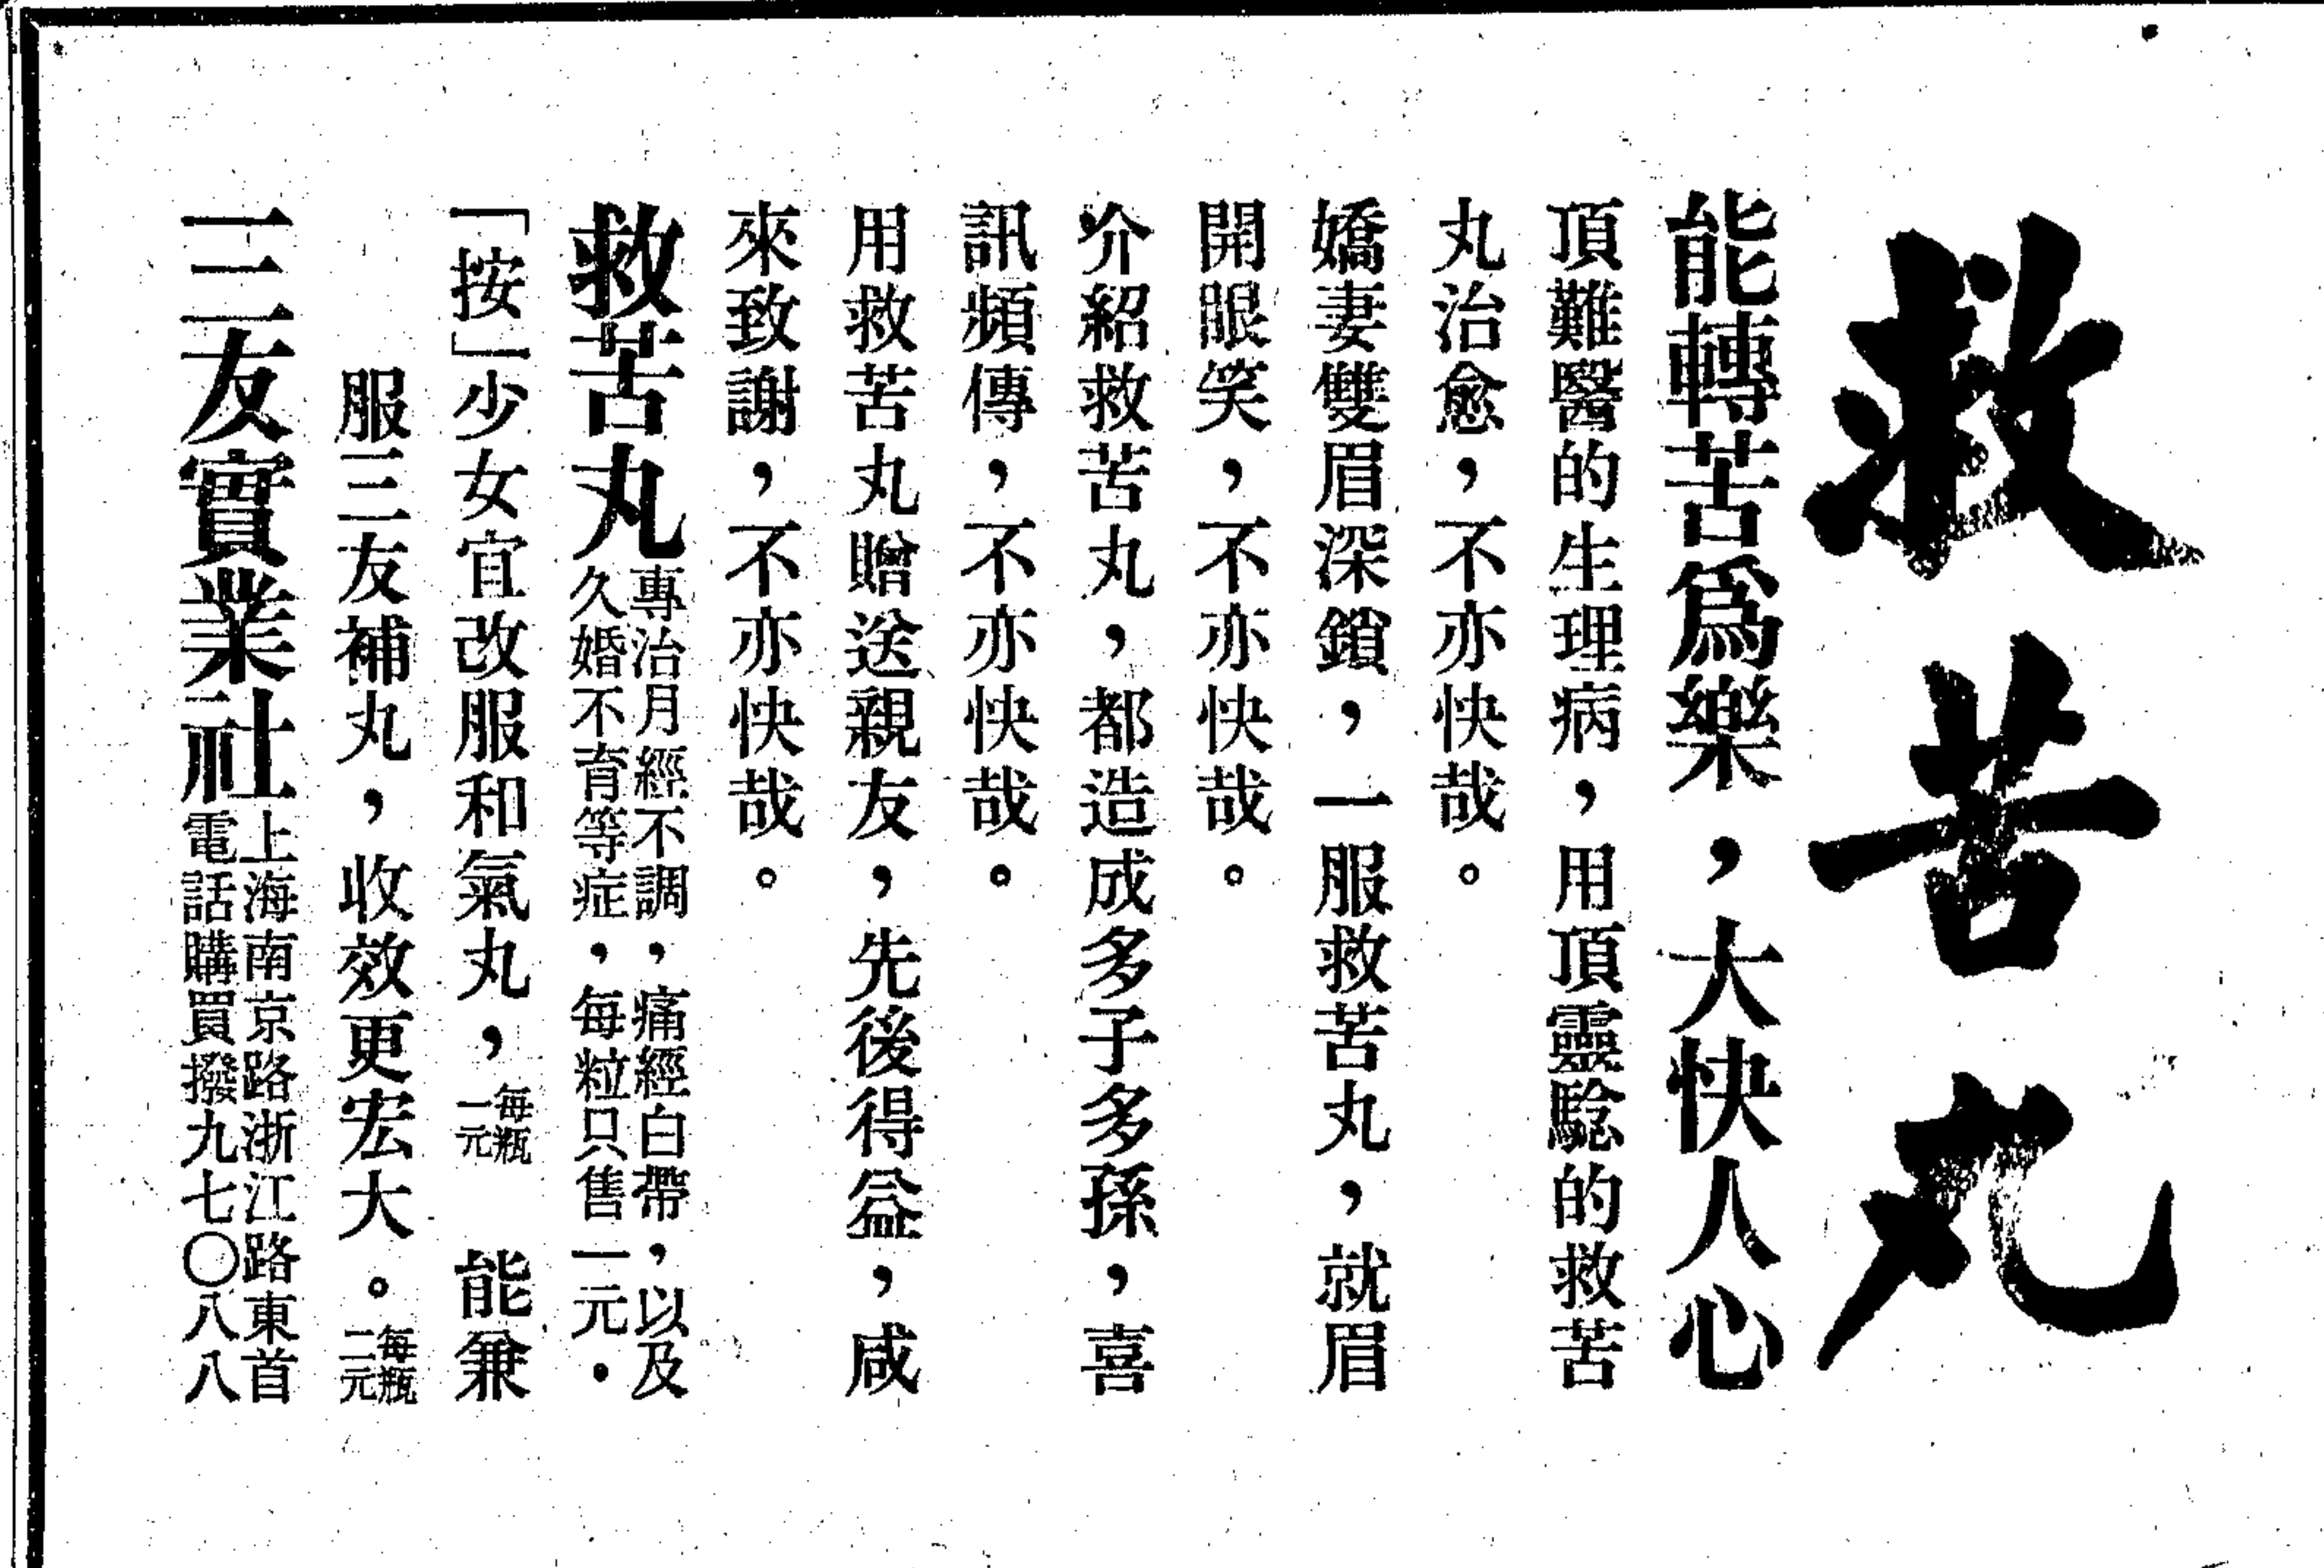 救苦丸
能轉苦爲樂，大快人心
頂難醫的生理病，用頂靈驗的救苦
丸治愈，不亦快哉。
嬌妻雙眉深鎖，一服救苦丸，就眉
開眼笑，不亦快哉。
介紹救苦丸，都造成多子多孫，喜
訊頻傳，不亦快哉。
用救苦丸贈送親友，先後得益，咸
來致謝，不亦快哉。
救苦丸
專治月經不調，痛經白帶，以及
久婚不育等症，每粒只售一元．
「按」少女宜改服和氣丸，
每瓶
一元
能兼
服三友補丸，收效更宏大。
每瓶
二元
三友實業社
上海南京路浙江路東首
電話購買撥九七〇八八